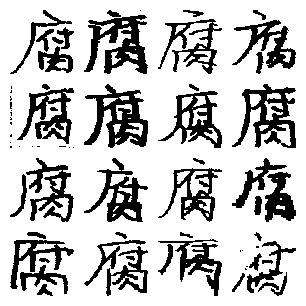 腐腐腐腐
腐腐腐腐
腐腐腐腐
腐腐腐腐